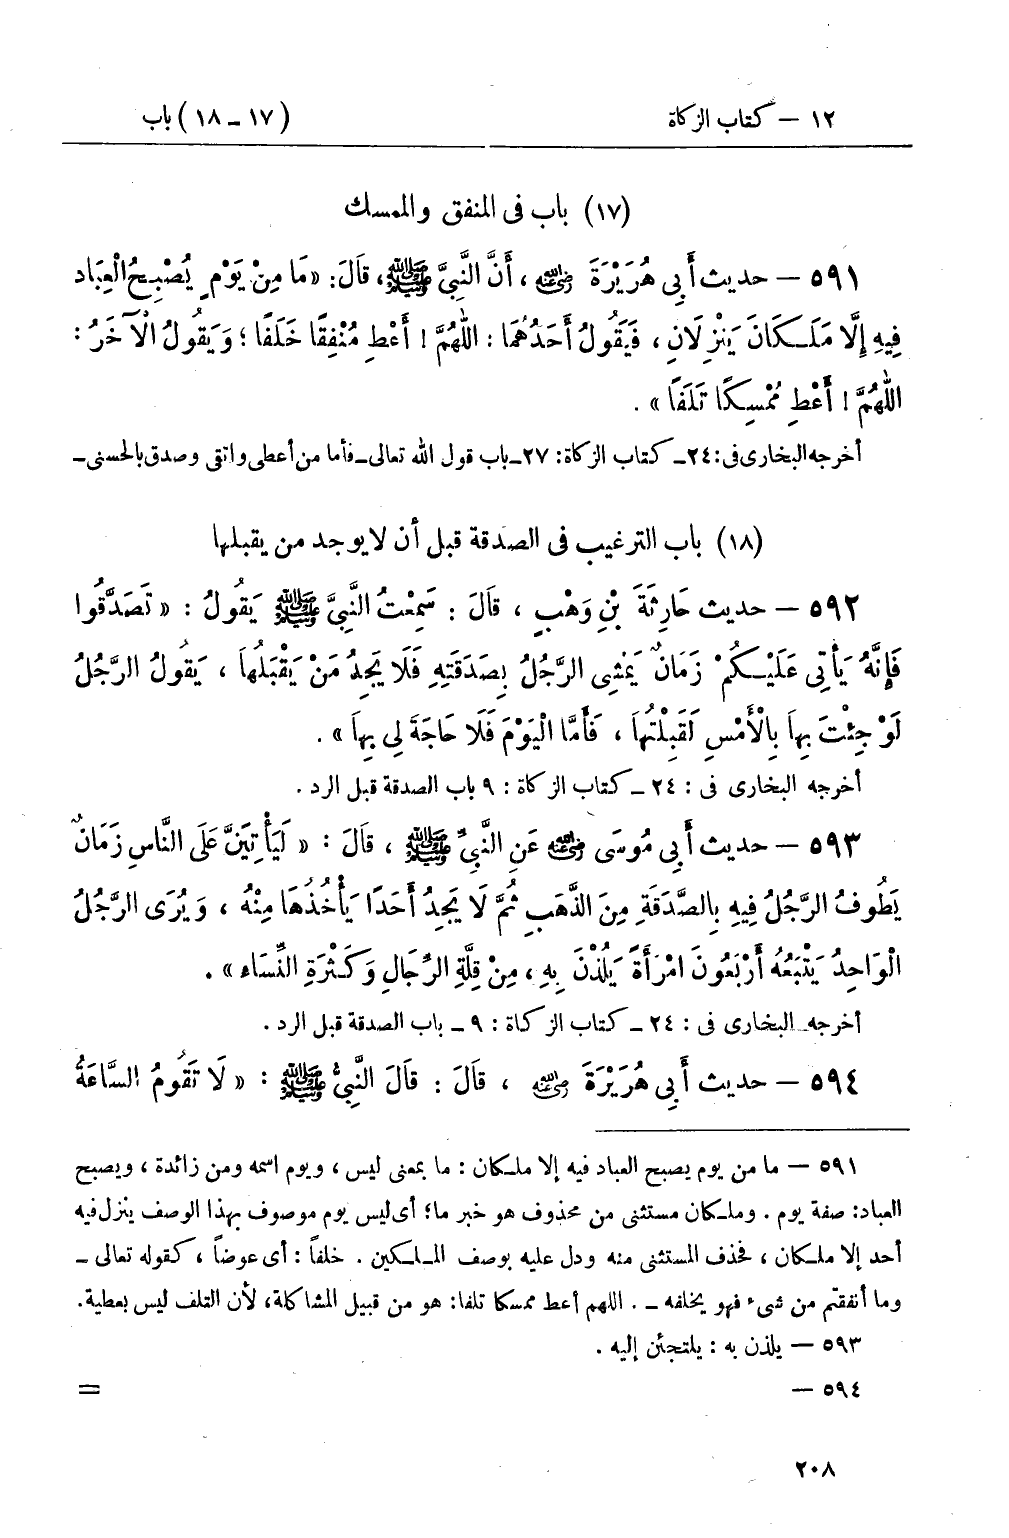 ١٢ – كتاب الزكاة (١٧ – ١٨) باب
(١٧) باب فى المنفق والممسك
٥٩١ – حديث أَبِي هُرَيْرَةَ رضي الله عنه ، أَنَّ النَّبِيَّ ﷺ، قَالَ: «مَا مِنْ يَوْمٍ يُصْبِحُ الْعِبَاد
فِيهِ إِلَّا مَلَكَانَ يَنْزِلَانِ ، فَيَقُولُ أَحَدُهُمَا : اللّٰهُمَّ ! أَعْطِ مُنْفِقًا خَلَفًا ؛ وَيَقُولُ الْآخَرُ :
اللّٰهُمَّ ! أَعْطِ مُمْسِكًا تَلَفًا » .
أخرجه البخارى فى : ٢٤ــ كتاب الزكاة: ٢٧ــ باب قول الله تعالى ــ فأما من أعطى واتقى وصدق بالحسنى ــ
(١٨) باب الترغيب فى الصدقة قبل أن لا يوجد من يقبلها
٥٩٢ – حديث حَارِثَةَ بْنِ وَهْبٍ ، قَالَ : سَمِعْتُ النَّبِيَّ ﷺ يَقُولُ : « تَصَدَّقُوا
فَإِنَّهُ يَأْتِى عَلَيْكُمْ زَمَانٌ يَمْشِى الرَّجُلُ بِصَدَقَتِهِ فَلَا يَجِدُ مَنْ يَقْبَلُهَا ، يَقُولُ الرَّجُلُ
لَوْ جِئْتَ بِهَا بِالْأَمْسِ لَقَبِلْتُهَا ، فَأَمَّا الْيَوْمَ فَلَا حَاجَةَ لِى بِهَا » .
أخرجه البخارى فى : ٢٤ ــ كتاب الزكاة : ٩ باب الصدقة قبل الرد .
٥٩٣ – حديث أَبِي مُوسَى رضي الله عنه عَنِ النَّبِيِّ ﷺ ، قَالَ : « لَيَأْتِيَنَّ عَلَى النَّاسِ زَمَانٌ
يَطُوفُ الرَّجُلُ فِيهِ بِالصَّدَقَةِ مِنَ الذَّهَبِ ثُمَّ لَا يَجِدُ أَحَدًا يَأْخُذُهَا مِنْهُ ، وَيُرَى الرَّجُلُ
الْوَاحِدُ يَتْبَعُهُ أَرْبَعُونَ امْرَأَةً يَلُذْنَ بِهِ ، مِنْ قِلَّةِ الرِّجَالِ وَكَثْرَةِ النِّسَاء » .
أخرجه البخارى فى : ٢٤ ــ كتاب الزكاة : ٩ ــ باب الصدقة قبل الرد .
٥٩٤ – حديث أَبِي هُرَيْرَةَ رضي الله عنه ، قَالَ : قَالَ النَّبِيُّ ﷺ : « لَا تَقُومُ السَّاعَةُ
٥٩١ – ما من يوم يصبح العباد فيه إلا ملكان : ما بمعنى ليس ، ويوم اسمه ومن زائدة ، ويصبح
العباد : صفة يوم . وملكان مستثنى من محذوف هو خبر ما ؛ أى ليس يوم موصوف بهذا الوصف ينزل فيه
أحد إلا ملكان ، فحذف المستثنى منه ودل عليه بوصف الملكين . خلفاً : أى عوضاً ، كقوله تعالى ــ
وما أنفقتم من شىء فهو يخلفه ــ . اللهم أعط ممسكا تلفا : هو من قبيل المشاكلة ، لأن التلف ليس بعطية .
٥٩٣ – يلذن به : يلتجئن إليه .
٥٩٤ – =
٢٠٨